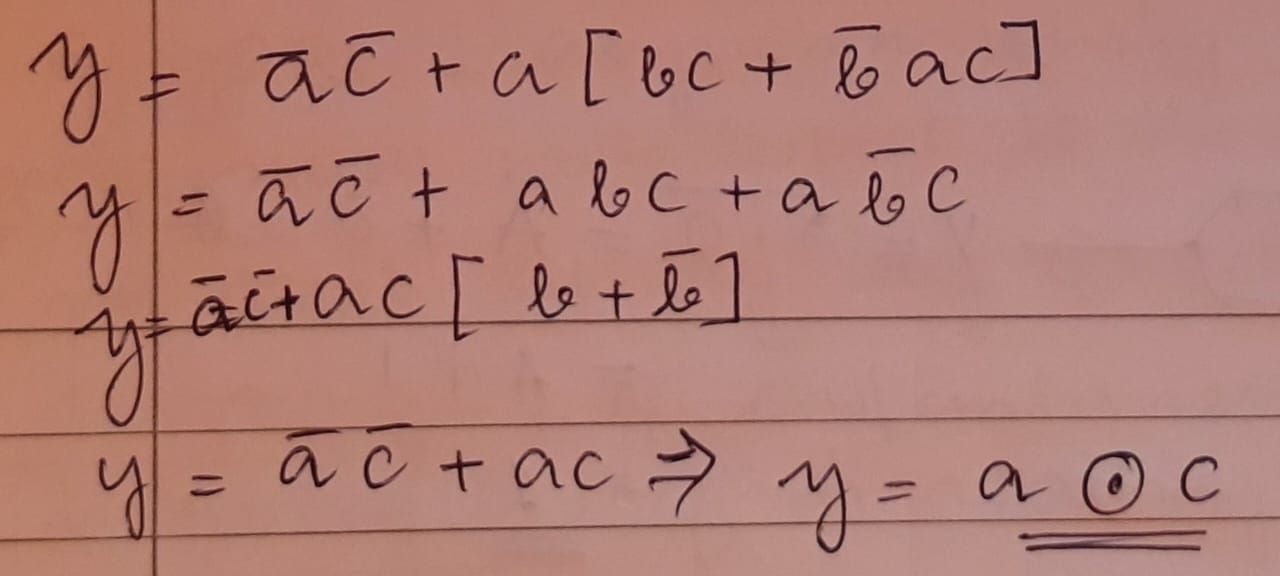 y = a̅ c̅ + a [ bc + b̅ ac ]
y = a̅ c̅ + a b c + a b̅ c
y = a̅ c̅ + a c [ b + b̅ ]
y = a̅ c̅ + ac ⇒ y = a ⊙ c